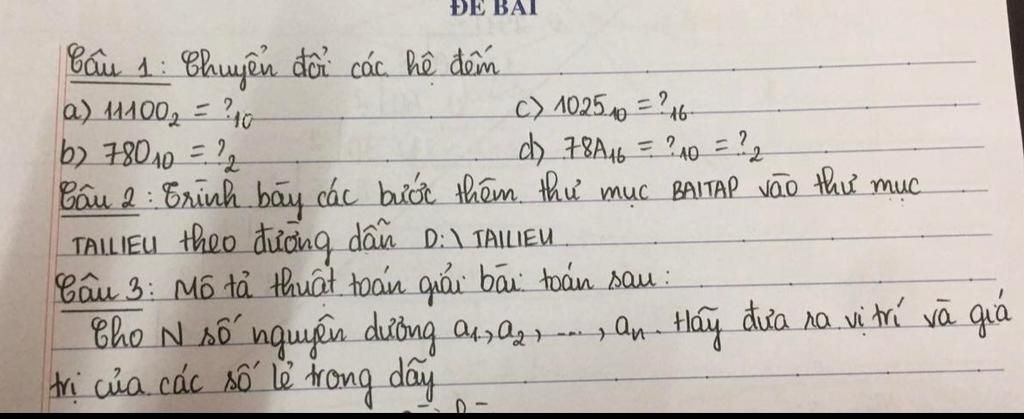 ĐỀ BÀI
Câu 1: Chuyển đổi các hệ đếm
a) 11100₂ = ?₁₀ c) 1025₁₀ = ?₁₆
b) 780₁₀ = ?₂ d) 78A₁₆ = ?₁₀ = ?₂
Câu 2: Trình bày các bước thêm thư mục BAITAP vào thư mục
TAILIEU theo đường dẫn D:\TAILIEU
Câu 3: Mô tả thuật toán giải bài toán sau:
Cho N số nguyên dương a₁, a₂, ..., aₙ. Hãy đưa ra vị trí và giá
trị của các số lẻ trong dãy